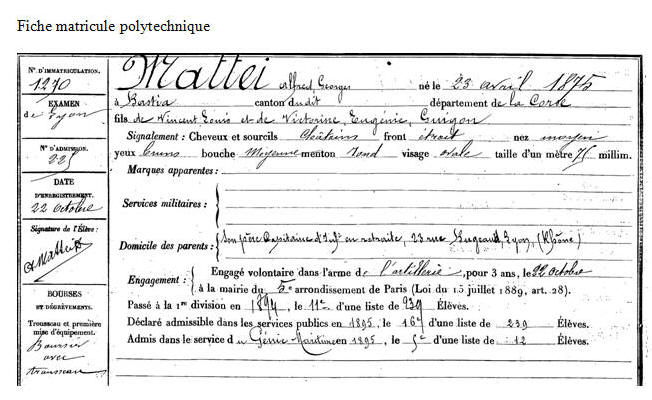 Fiche matricule polytechnique
N° D'IMMATRICULATION.
1270
EXAMEN
de Lyon
N° D'ADMISSION.
225
DATE
D'ENREGISTREMENT.
22 octobre
Signature de l'Élève :
AMattei
BOURSES
ET DÉGRÈVEMENTS.
Trousseau et première
mise d'équipement.
Boursier
avec
trousseau
Mattei Alfred, Georges né le 23 avril 1875
à Bastia canton dudit département de la Corse
fils de Vincent Louis et de Victorine, Eugénie, Guigon
Signalement : Cheveux et sourcils Châtains front étroit nez moyen
yeux bruns bouche Moyenne menton rond visage ovale taille d'un mètre 75 millim.
Marques apparentes :
Services militaires :
Domicile des parents : Son père Capitaine d'Infie en retraite, 23 rue Bugeaud, Lyon, (Rhône)
Engagement : Engagé volontaire dans l'arme de l'artillerie, pour 3 ans, le 22 octobre
à la mairie du 5e arrondissement de Paris (Loi du 15 juillet 1889, art. 28).
Passé à la 1re division en 1894, le 11e d'une liste de 239 Élèves.
Déclaré admissible dans les services publics en 1895, le 16e d'une liste de 239 Élèves.
Admis dans le service du Génie Maritime en 1895, le 5e d'une liste de 12 Élèves.